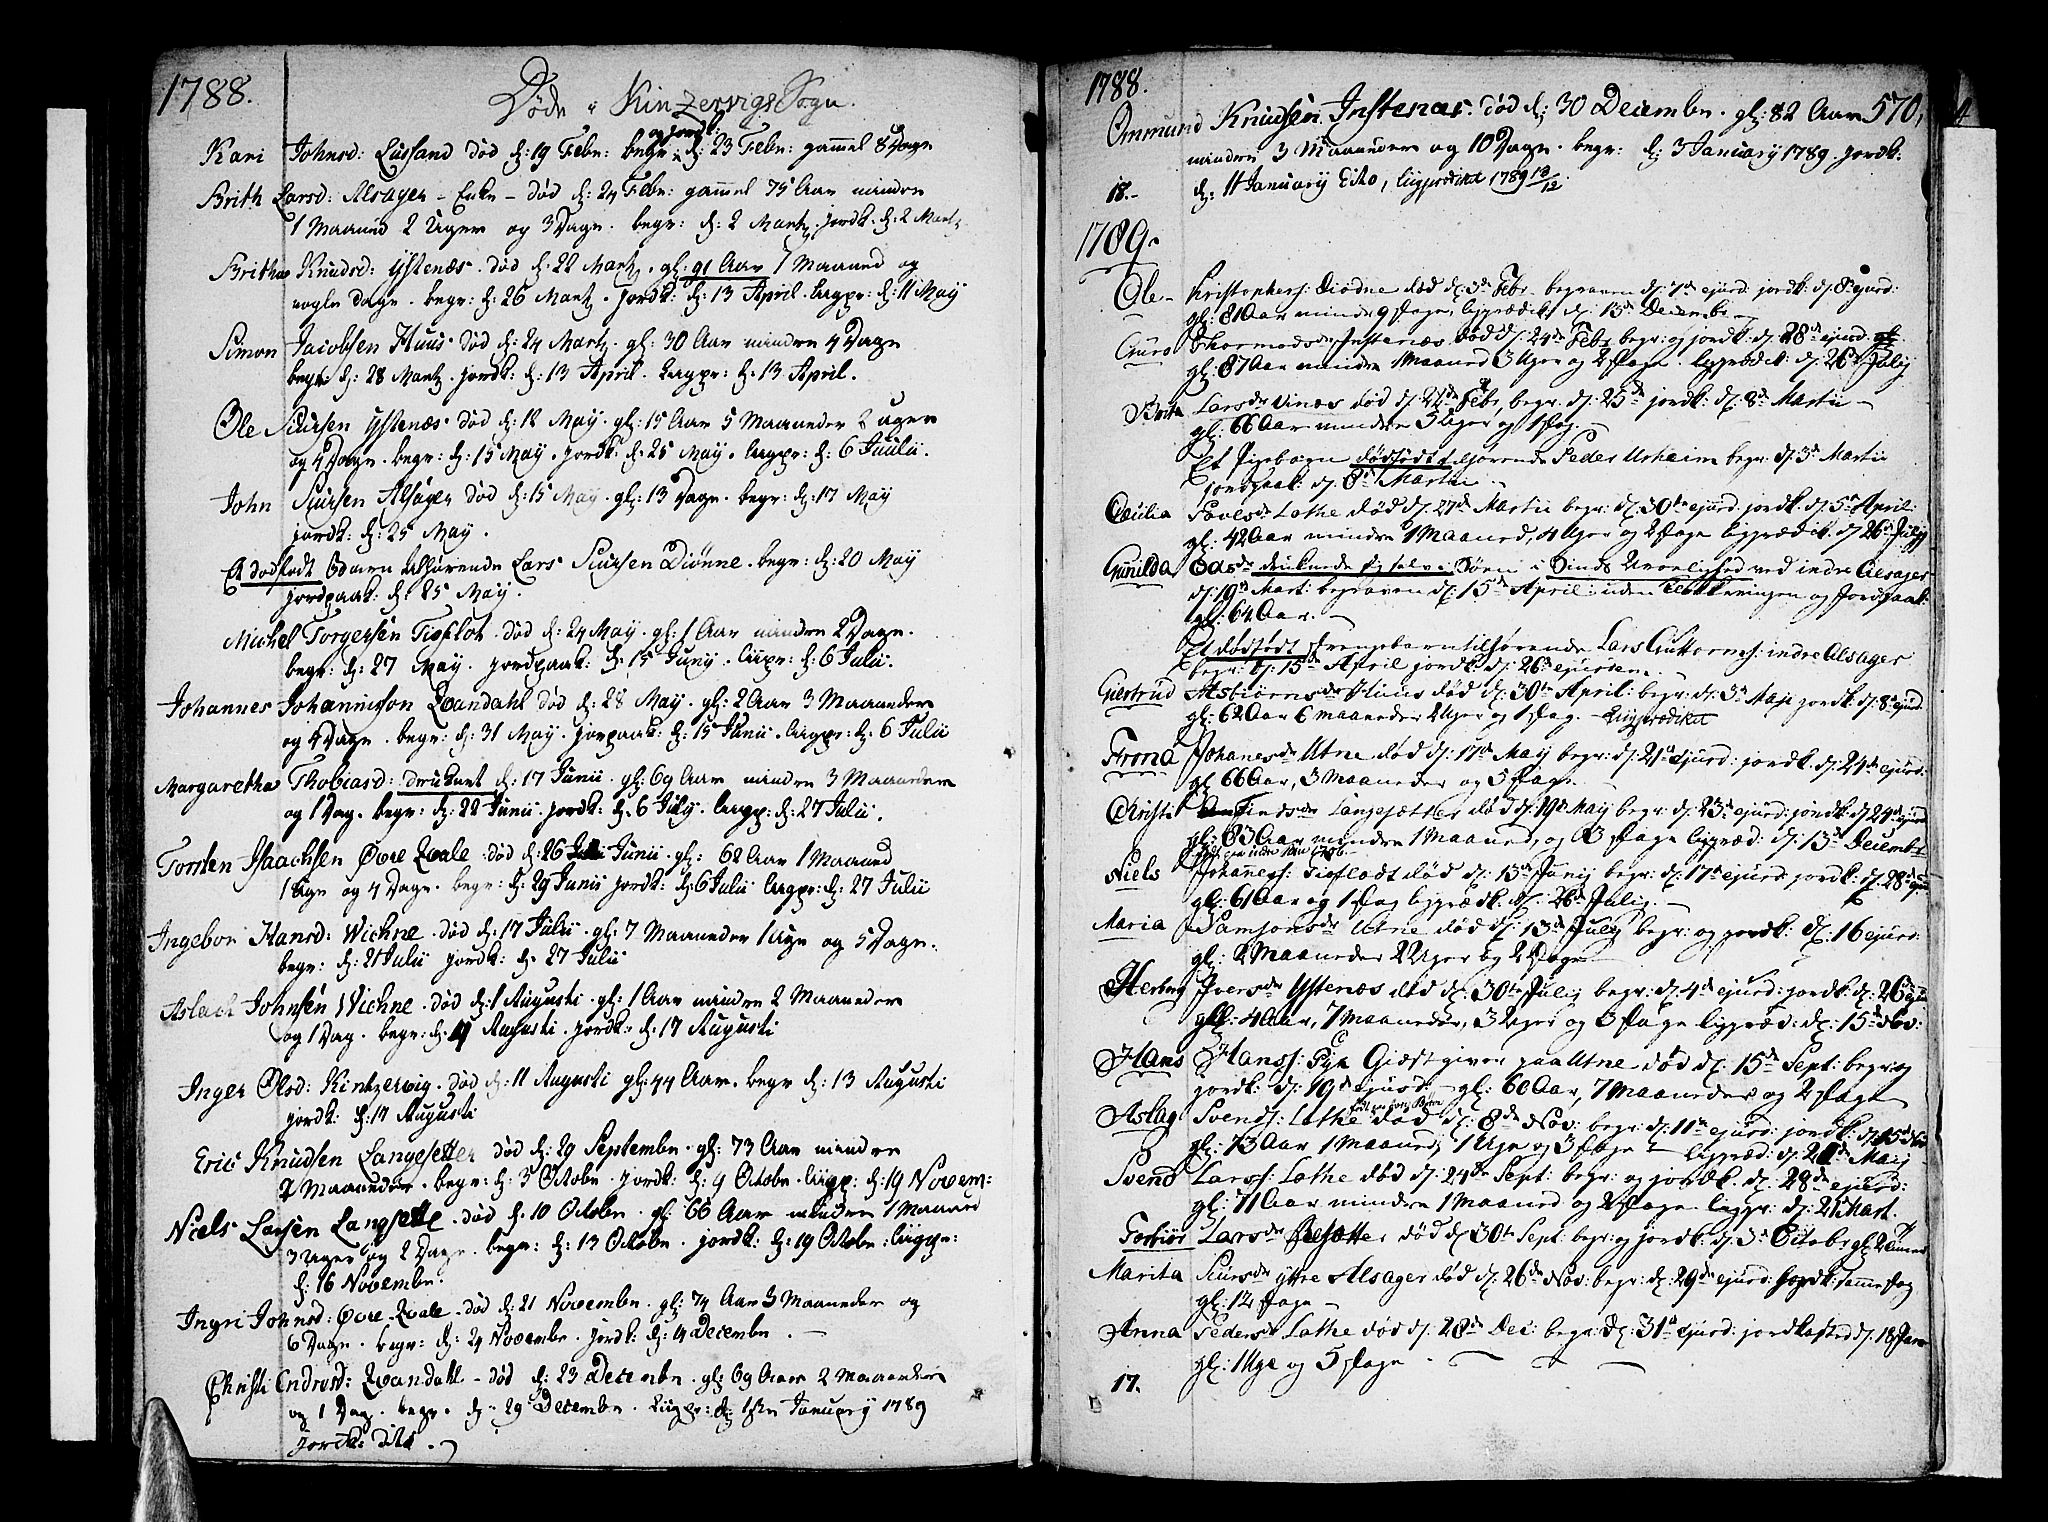 1788.
Døde i Kinzervigs Sogn.
og jordk:
Kari Johnsd: Lussand død d: 19 Febr: begr: d: 23 Febr: gammel 8 Dage
Brith Larsd: Alsager - Enke - død d: 24 Febr: gammel 75 Aar mindre
1 Maaned 2 Uger og 3 Dage. begr: d: 2 Martz. jordk. d: 2 Martz
Britha Knudsd: Ystenæs. død d: 22 Martz. gl: 91 Aar 1 Maaned og
nogle Dage. begr: d: 26 Martz. jordk: d: 13 April. Liigpr: d: 11 May
Simon Jacobsen Huus død d: 24 Martz. gl: 30 Aar mindre 4 Dage
begr: d: 28 Martz. jordk: d: 13 April. Liigpr: d. 13 April.
Ole Siursen Ystenæs død d: 12 May. gl: 15 Aar 5 Maaneder 2 uger
og 4 Dage. begr: d: 15 May. jordk: d: 25 May. Liigpr: d: 6 Julii.
John Siursen Alsager død d: 15 May. gl: 13 Dage. begr: d: 17 May
jordk: d: 25 May.
Et dødfødt Barn tilhørende Lars Siursen Diønne. begr: d: 20 May
jordpaak: d: 25 May.
Michel Torgersen Tioflot. død d: 24 May. gl: 1 Aar mindre 2 Dage.
begr: d: 27 May. jordpaak: d: 15 Juny. Liigpr: d: 6 Julii.
Johannes Johannisson Qvandahl død d: 28 May. gl: 2 Aar 3 Maaneder
og 4 Dage. begr: d: 31 May. jorpaak: d: 15 Junii. Liigpr: d: 6 Julii
Margaretha Thobiasd: druknet d: 17 Junii. gl: 69 Aar mindre 3 Maaneder
og 1 Dag. begr: d: 22 Junii. jordk: d. 6 July. Liigp: d: 27 Julii.
Torsten Isaachsen Øvre Qvale. død d: 26 Junii. gl: 62 Aar 1 Maaned
1 Uge og 4 Dage. begr: d: 29 Junii jordk: d: 6 Julii Liigpr: d: 27 Julii
Ingebor Hansd: Wichne. død d: 17 Julii. gl: 7 Maaneder 1 Uge og 5 Dage.
begr: d: 21 Julii jordk: d. 27 Julii
Aslach Johnsen Wichne. død d: 1 Augusti. gl: 1 Aar mindre 2 Maaneder
og 1 Dag. begr: d: Augusti. jordk: d: 17 Augusti
Inger Olsd: Kintzervig. død d: 11 Augusti gl: 44 Aar. begr d: 13 Augusti
jordk: d: 17 Augusti
Eric Knudsen Langesetter død d: 29 Septembr. gl: 73 Aar mindre
2 Maaneder. begr: d: 3 Octobr. jordk: d: 4 Octobr. Liigp: d: 19 Novem:
Niels Larsen Langsette. død d. 10 Octobr. gl: 66 Aar mindre 1 Maaned
3 Uger og 2 Dage. begr: d: 13 Octobr. jordk: d: 19 Octobr: liigpr:
d: 16 Novembr.
Ingri Johnsd: Øvre Qvale. død d: 21 Novembr. gl: 74 Aar 3 Maaneder og
6 Dage. begr: d: 24 Novembr. jordk: d: 4 Decembr.
Christi Endresd: Qvandahl - død d: 23 Decembr. gl: 69 Aar 2 Maaneder
og 1 Dag. begr. d: 29 Decembr. Liigpr: d: January 1789
jordk: dito.
1788.
570,
Ommund Knudsen Instenæs. død d: 30 Decembr. gl: 82 Aar
mindre 3 Maaneder og 10 Dage. begr: d: 3 January 1789. jordk:
18.- d: 11 January Dito, liigprædiket 1789 13/12
1789.
Ole Kristophers: Diødne død d: 3de Febr begraven d: 7de ejusd: jordk: d: 8de ejusd:
gl: 81 Aar mindre 9 Dage, ligprædiket d: 15de Decembr.
Guro Thormodsdr Instenæs død d: 24de Febr begr: og jordk: d: 28de ejusd
gl: 87 Aar mindre 1 Maaned 3 Uger og 2 Dage. ligprædik: d: 26de July
Brita Larsdr Vines død d: 21de Febr, begr: d: 25de jordk: d: 8de Martii
gl: 66 Aar mindre 3 Uger og 1 Dag.
Et Pigebarn dødfødt tilhørende Peder Urheim begr: d: 3de Martii
jordpaak: d: 8de Martii.
Cæcilia Povelsdr Lothe død d: 27de Martii begr: d: 30te ejusd. jordk. d: 5te April:
gl: 42 Aar mindre 1 Maaned, 4 Uger og 2 Dage ligprædik: d: 26de July
Gunilda druknede sig selv i Søen i Sinds Urolighed ved indre Alsager
d: 19de Mart: begraven d: 15de April: uden Klokkeringen og Jordpaak:
gl: 64 Aar.
Et dødfødt Drengebarn tilhørende Lars Guttorms: indre Alsager
begr: d: 15de April jordk: d: 26de ejusdem
Giertrud Asbiørnsdr Huus død d: 30te April: begr: d: 3de Maji jordk: d: 8de ejusd:
gl: 62 Aar 6 maaneder 2 Uger og 1 Dag. - Liigprædiket
Frona Johanesdr Utne død d: 17de May begr: d: 21de ejusd: jordk: d: 24de ejusd:
gl: 66 Aar, 3 Maaneder og 5 Dage.
Christi Langesætter død d: 19de May begr: d: 23de ejusd: jordk: d: 24de ejusd
gl: 83 Aar mindre 1 Maaned, og 3 Dage ligpræd: d: 13de Decembr
Niels Johaness: Tioflodt død d: 13de Junij begr: d: 17de ejusd: jordk: d: 28de
gl: 61 Aar og 1 Dag ligprædk: d: 26de July.
Maria Samsonsdr Utne død d: 13de July begr: og jordk: d: 16 ejusd:
gl: 2 Maaneder 2 Uger og 2 Dage
Herborg Iversdr Ystenæs død d: 30te July begr: d: 4de ejusd: jordk: d: 26de
gl: 4 Aar, 7 Maaneder, 3 Uger og 3 Dage ligpræd: d: 15de Nov:
Hans Hanss: Giæstgiver paa Utne død d: 15de Sept: begr: og
jordk: d: 19de ejusd - gl: 60 Aar, 7 Maaneder og 2 Dage
Aslag Svends: Lothe død d: 8de Nov: begr: d: 11te ejusd: jordk: d: 15de
gl: 73 Aar 1 Maaned, 1 Uge og 3 Dage - ligpræd: d: Maij
Svend Larss: Lothe død d: 24de Sept: begr: og jordk: d: 28de ejusd:
gl: 71 Aar mindre 1 Maaned og 2 Dage ligpr: d: 21 Mart.
Torbiør Larsdr død d: 30te Sept: begr: og jordk: d: 3de Octobr
Marita Siursdr ytre Alsager død d: 26de Nov: begr: d: 29de ejusd: jordk: samme Dag
gl: 12 Dage
Anna Pedersdr Lothe død d: 28de Dec: begr: d: 31te ejusd: jordkasted d: 18 Janr
gl: 1 Uge og 5 Dage.
17.